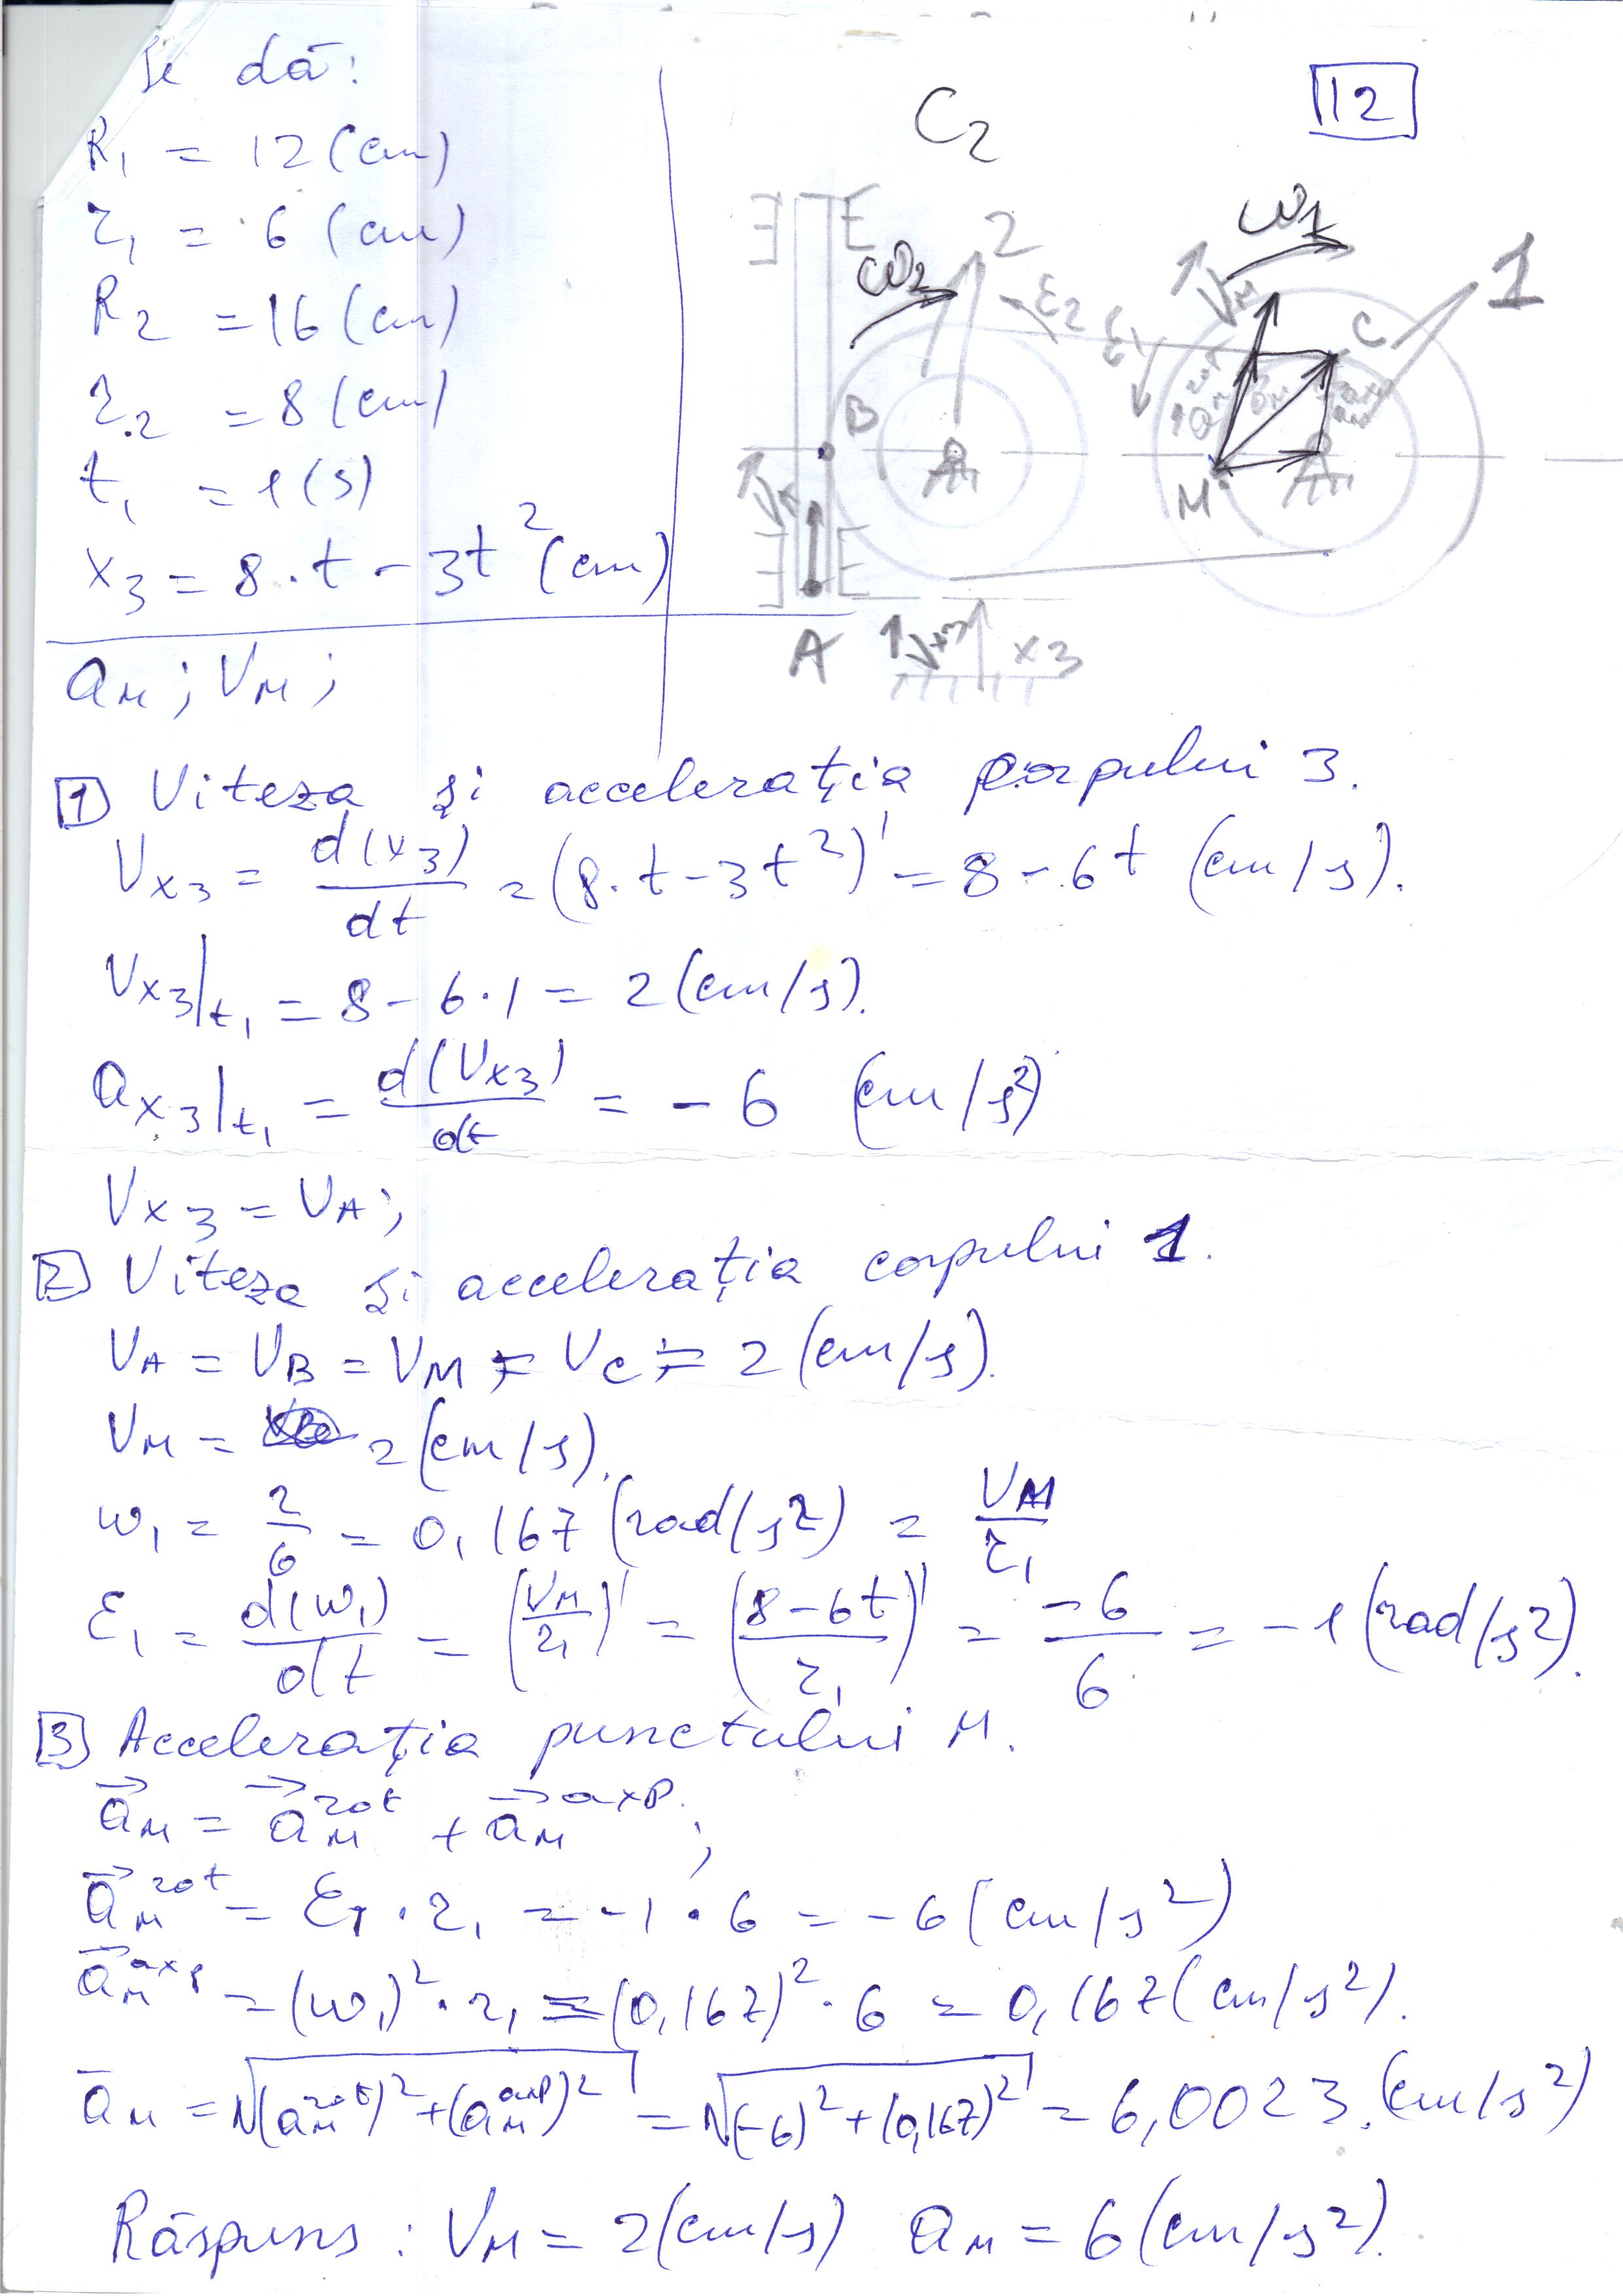 Se dă:
R₁ = 12 (cm)
r₁ = 6 (cm)
R₂ = 16 (cm)
r₂ = 8 (cm)
t₁ = 1 (s)
x₃ = 8·t - 3t² (cm)
a_M; V_M;
112
C₂
E E
ω₂
2
ε₂
ε₁
ω₁
V_M
1
C
B
M
A
V_x3
x3
1 Viteza și accelerația corpului 3.
V_x3 = d(x₃)/dt = (8·t - 3t²)' = 8 - 6t (cm/s).
V_x3|t₁ = 8 - 6·1 = 2 (cm/s).
a_x3|t₁ = d(V_x3)/dt = - 6 (cm/s²)
V_x3 = V_A;
2 Viteza și accelerația corpului 1.
V_A = V_B = V_M = V_C = 2 (cm/s).
V_M = 2 (cm/s).
ω₁ = 2/6 = 0,167 (rad/s²) = V_M/r₁
ε₁ = d(ω₁)/dt = (V_M/r₁)' = (8-6t/r₁)' = -6/6 = -1 (rad/s²).
3 Accelerația punctului M.
a⃗_M = a⃗_M^rot + a⃗_M^axp;
a⃗_M^rot = ε₁·r₁ = -1·6 = -6 (cm/s²)
a⃗_M^axp = (ω₁)²·r₁ = (0,167)²·6 = 0,167 (cm/s²).
a̅_M = √(a_M^rot)²+(a_M^axp)² = √(-6)²+(0,167)² = 6,0023 (cm/s²)
Răspuns: V_M = 2 (cm/s) a_M = 6 (cm/s²).